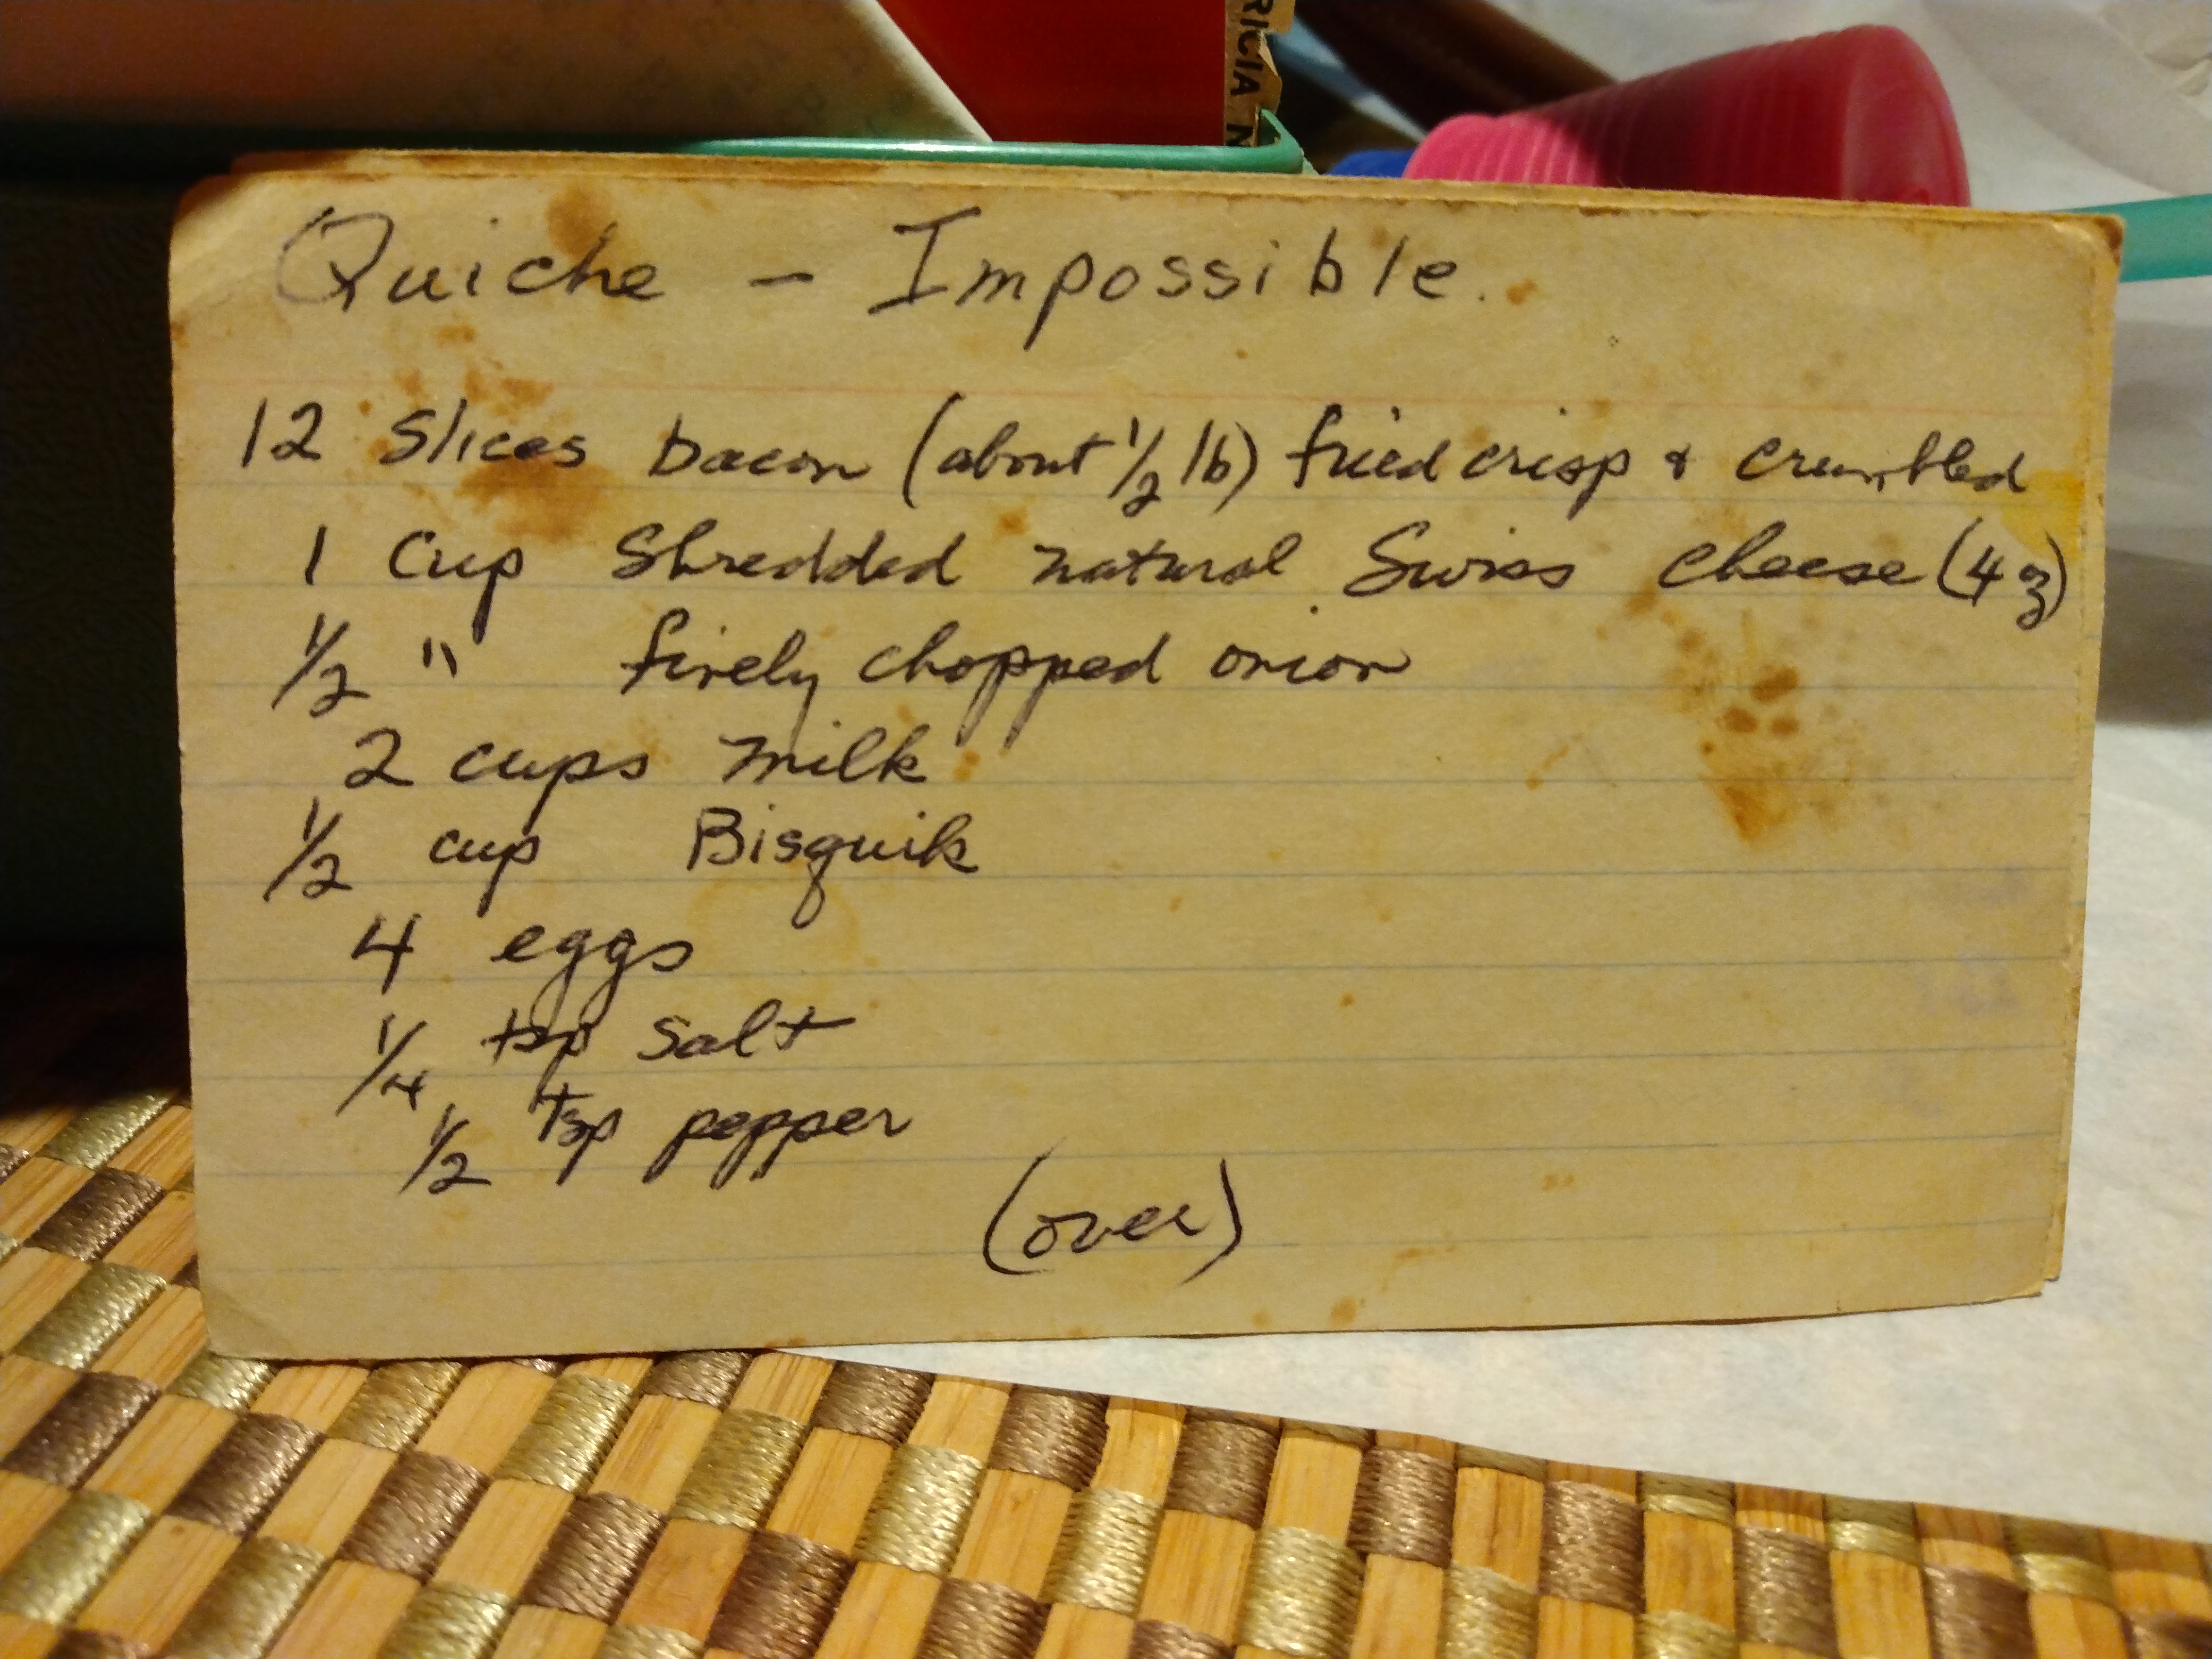 RICIA N
Quiche - Impossible.
12 Slices bacon (about 1/2 lb) fried crisp & crumbled
1 Cup Shredded natural Swiss Cheese (4 oz)
1/2 " finely chopped onion
2 cups milk
1/2 cup Bisquik
4 eggs
1/4 tsp salt
1/2 tsp pepper
(over)